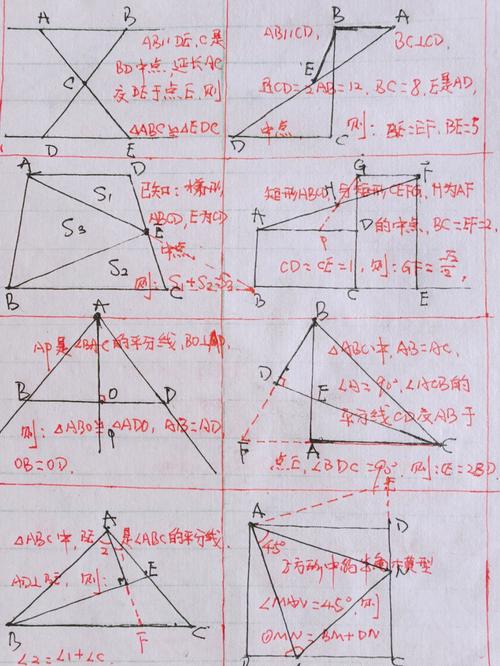 A B
AB∥DE, C是
BD中点, 延长AC
交DE于点E, 则
△ABC≌△EDC
C
D E
B A
AB∥CD,
BC⊥CD,
E
CD=2AB=12, BC=8, E是AD,
中点 则: BE=EF, BE=5
D C
A D
S₁
已知: 梯形,
ABCD, E为CD
中点
S₃
E
S₂
则: S₁+S₂=S₃
B C
G F
矩形ABCD与矩形CEFG, H为AF
H
A D
的中点, BC=EF=2,
P
CD=CE=1, 则: GF=
B C E
A
AP是∠BAC的平分线, BO⊥AP,
B O D
则: △ABO≌△ADO, AB=AD
P
OB=OD.
B
△ABC中, AB=AC,
∠A=90°, ∠ACB的
平分线CD交AB于
D E
F A C
点E, ∠BDC=90°, 则: CE=2BD.
A
△ABC中, BE是∠ABC的平分线
2
AD⊥BE, 则:
E
B F C
∠2=∠1+∠C.
A D
45°
正方形中的半角模型
N
∠MAN=45°, 则
①MN=BM+DN